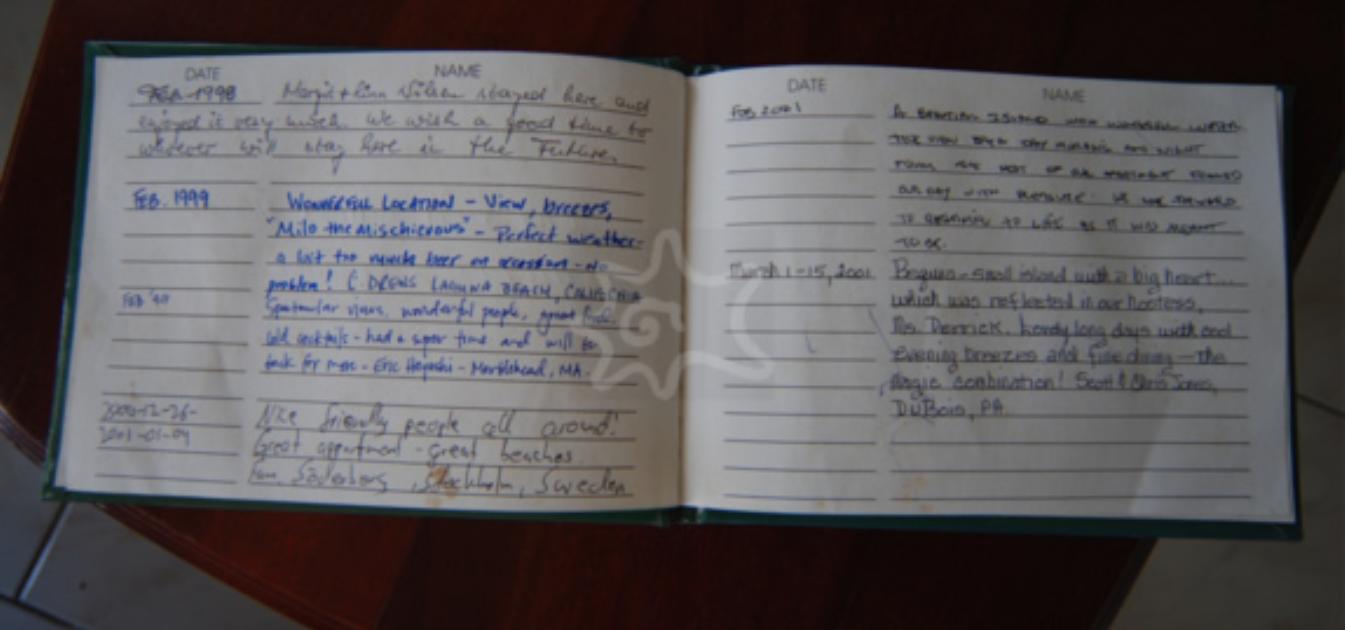 DATE NAME
1998 Margit + Finn Nilsen stayed here and
enjoyed it very much. We wish a good time to
whoever will stay here in the Future.
FEB. 1999 WONDERFUL LOCATION - VIEW, breezes,
"Milo the Mischievous" - Perfect weather -
a bit too much beer on occassion - No
problem! C. DREWS LAGUNA BEACH, CALIFORNIA
FEB '99 Spectacular views, wonderful people, great
cold cocktails - had a super time and will be
back for more - Eric Hayashi - Marblehead, MA.
2000-12-26- Nice friendly people all around!
2001-01-04 Great appartment - great beaches
Söderberg, Stockholm, Sweden
DATE NAME
Feb 2001 A ISLAND
THE VIEW MORNING AND NIGHT
FROM THE OF
WITH PLEASURE. WE
TO TO LIFE AS IT WAS MEANT
TO BE.
March 1-15, 2001 Bequia - small island with a big heart...
which was reflected in our hostess,
Ms. Derrick. long days with cool
evening breezes and fine dining - the
magic combination! Scott & Chris Jones,
DuBois, PA.